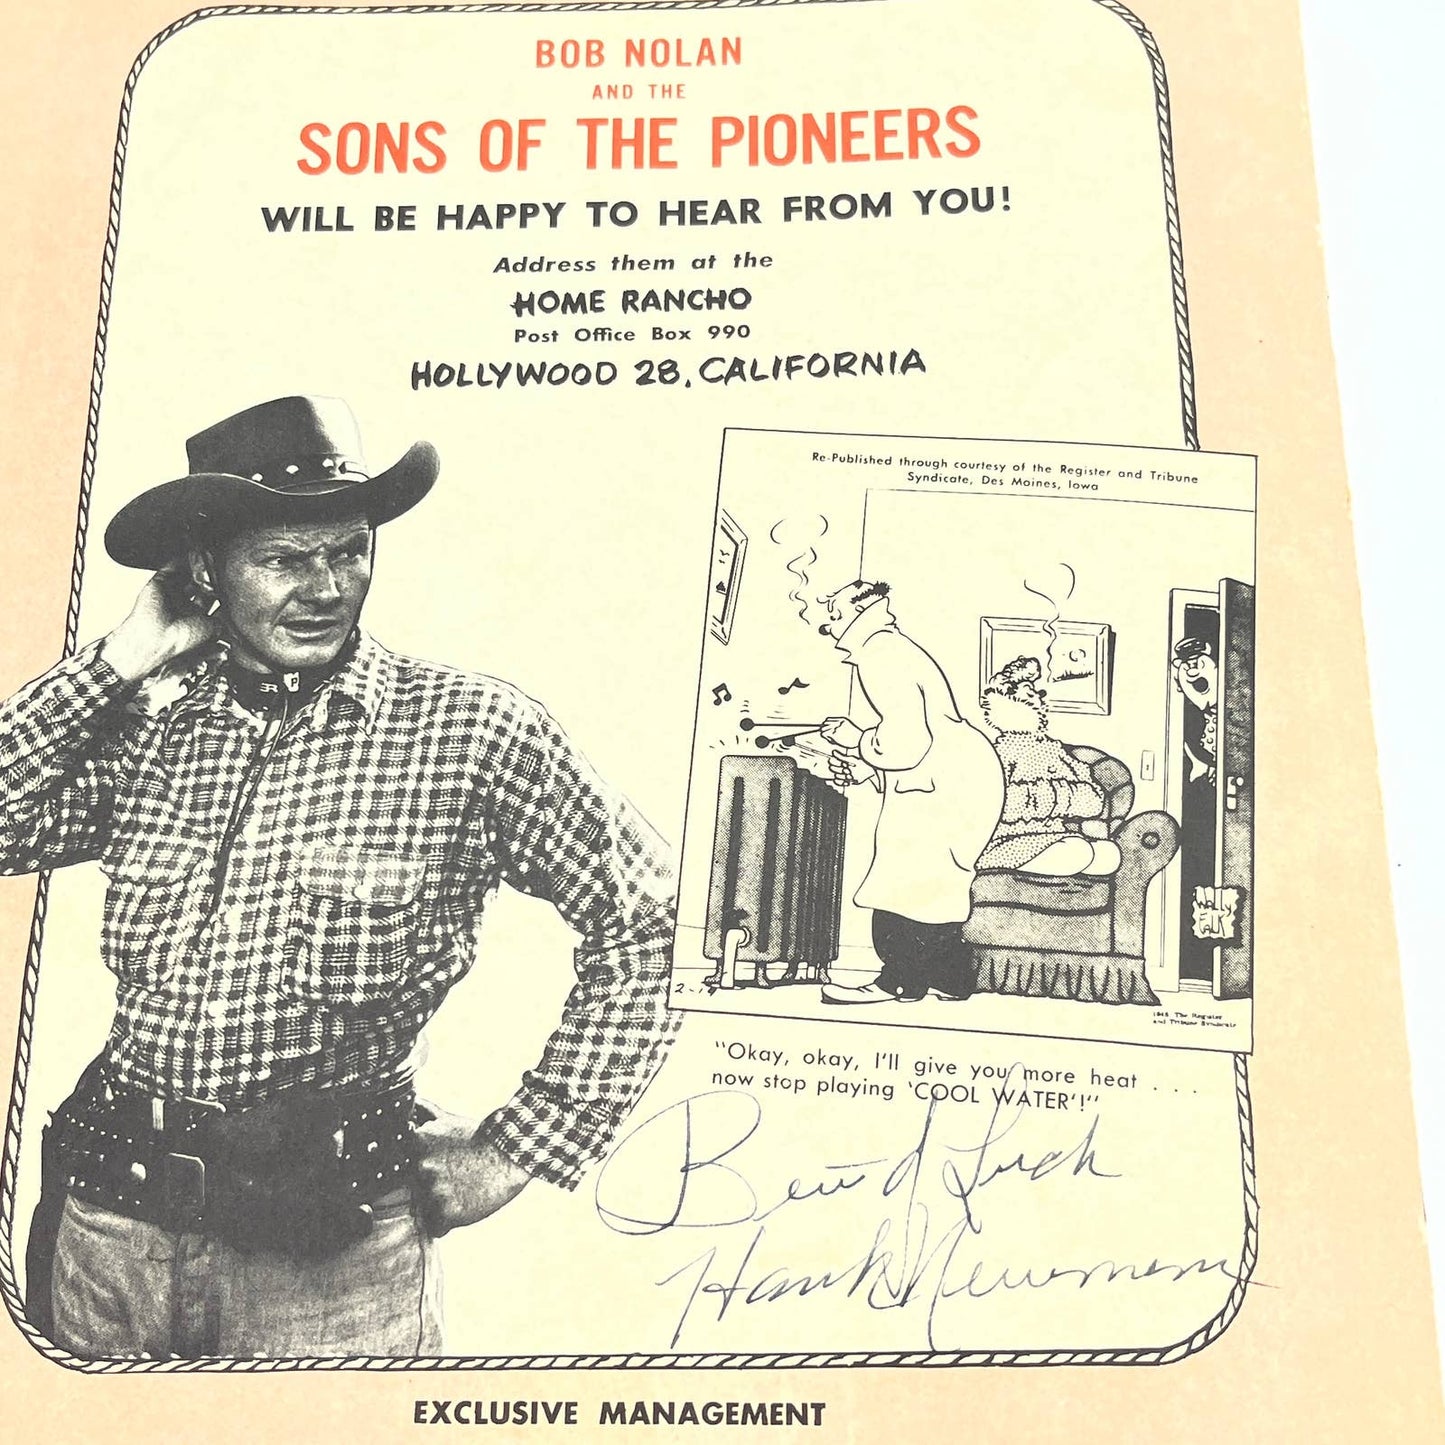 BOB NOLAN
AND THE
SONS OF THE PIONEERS
WILL BE HAPPY TO HEAR FROM YOU!
Address them at the
HOME RANCHO
Post Office Box 990
HOLLYWOOD 28, CALIFORNIA
Re-Published through courtesy of the Register and Tribune
Syndicate, Des Moines, Iowa
WALLY
FALK
2-19
1945 The Register
and Tribune Syndicate
"Okay, okay, I'll give you more heat . . .
now stop playing 'COOL WATER'!"
Best of Luck
Hank Newman
EXCLUSIVE MANAGEMENT